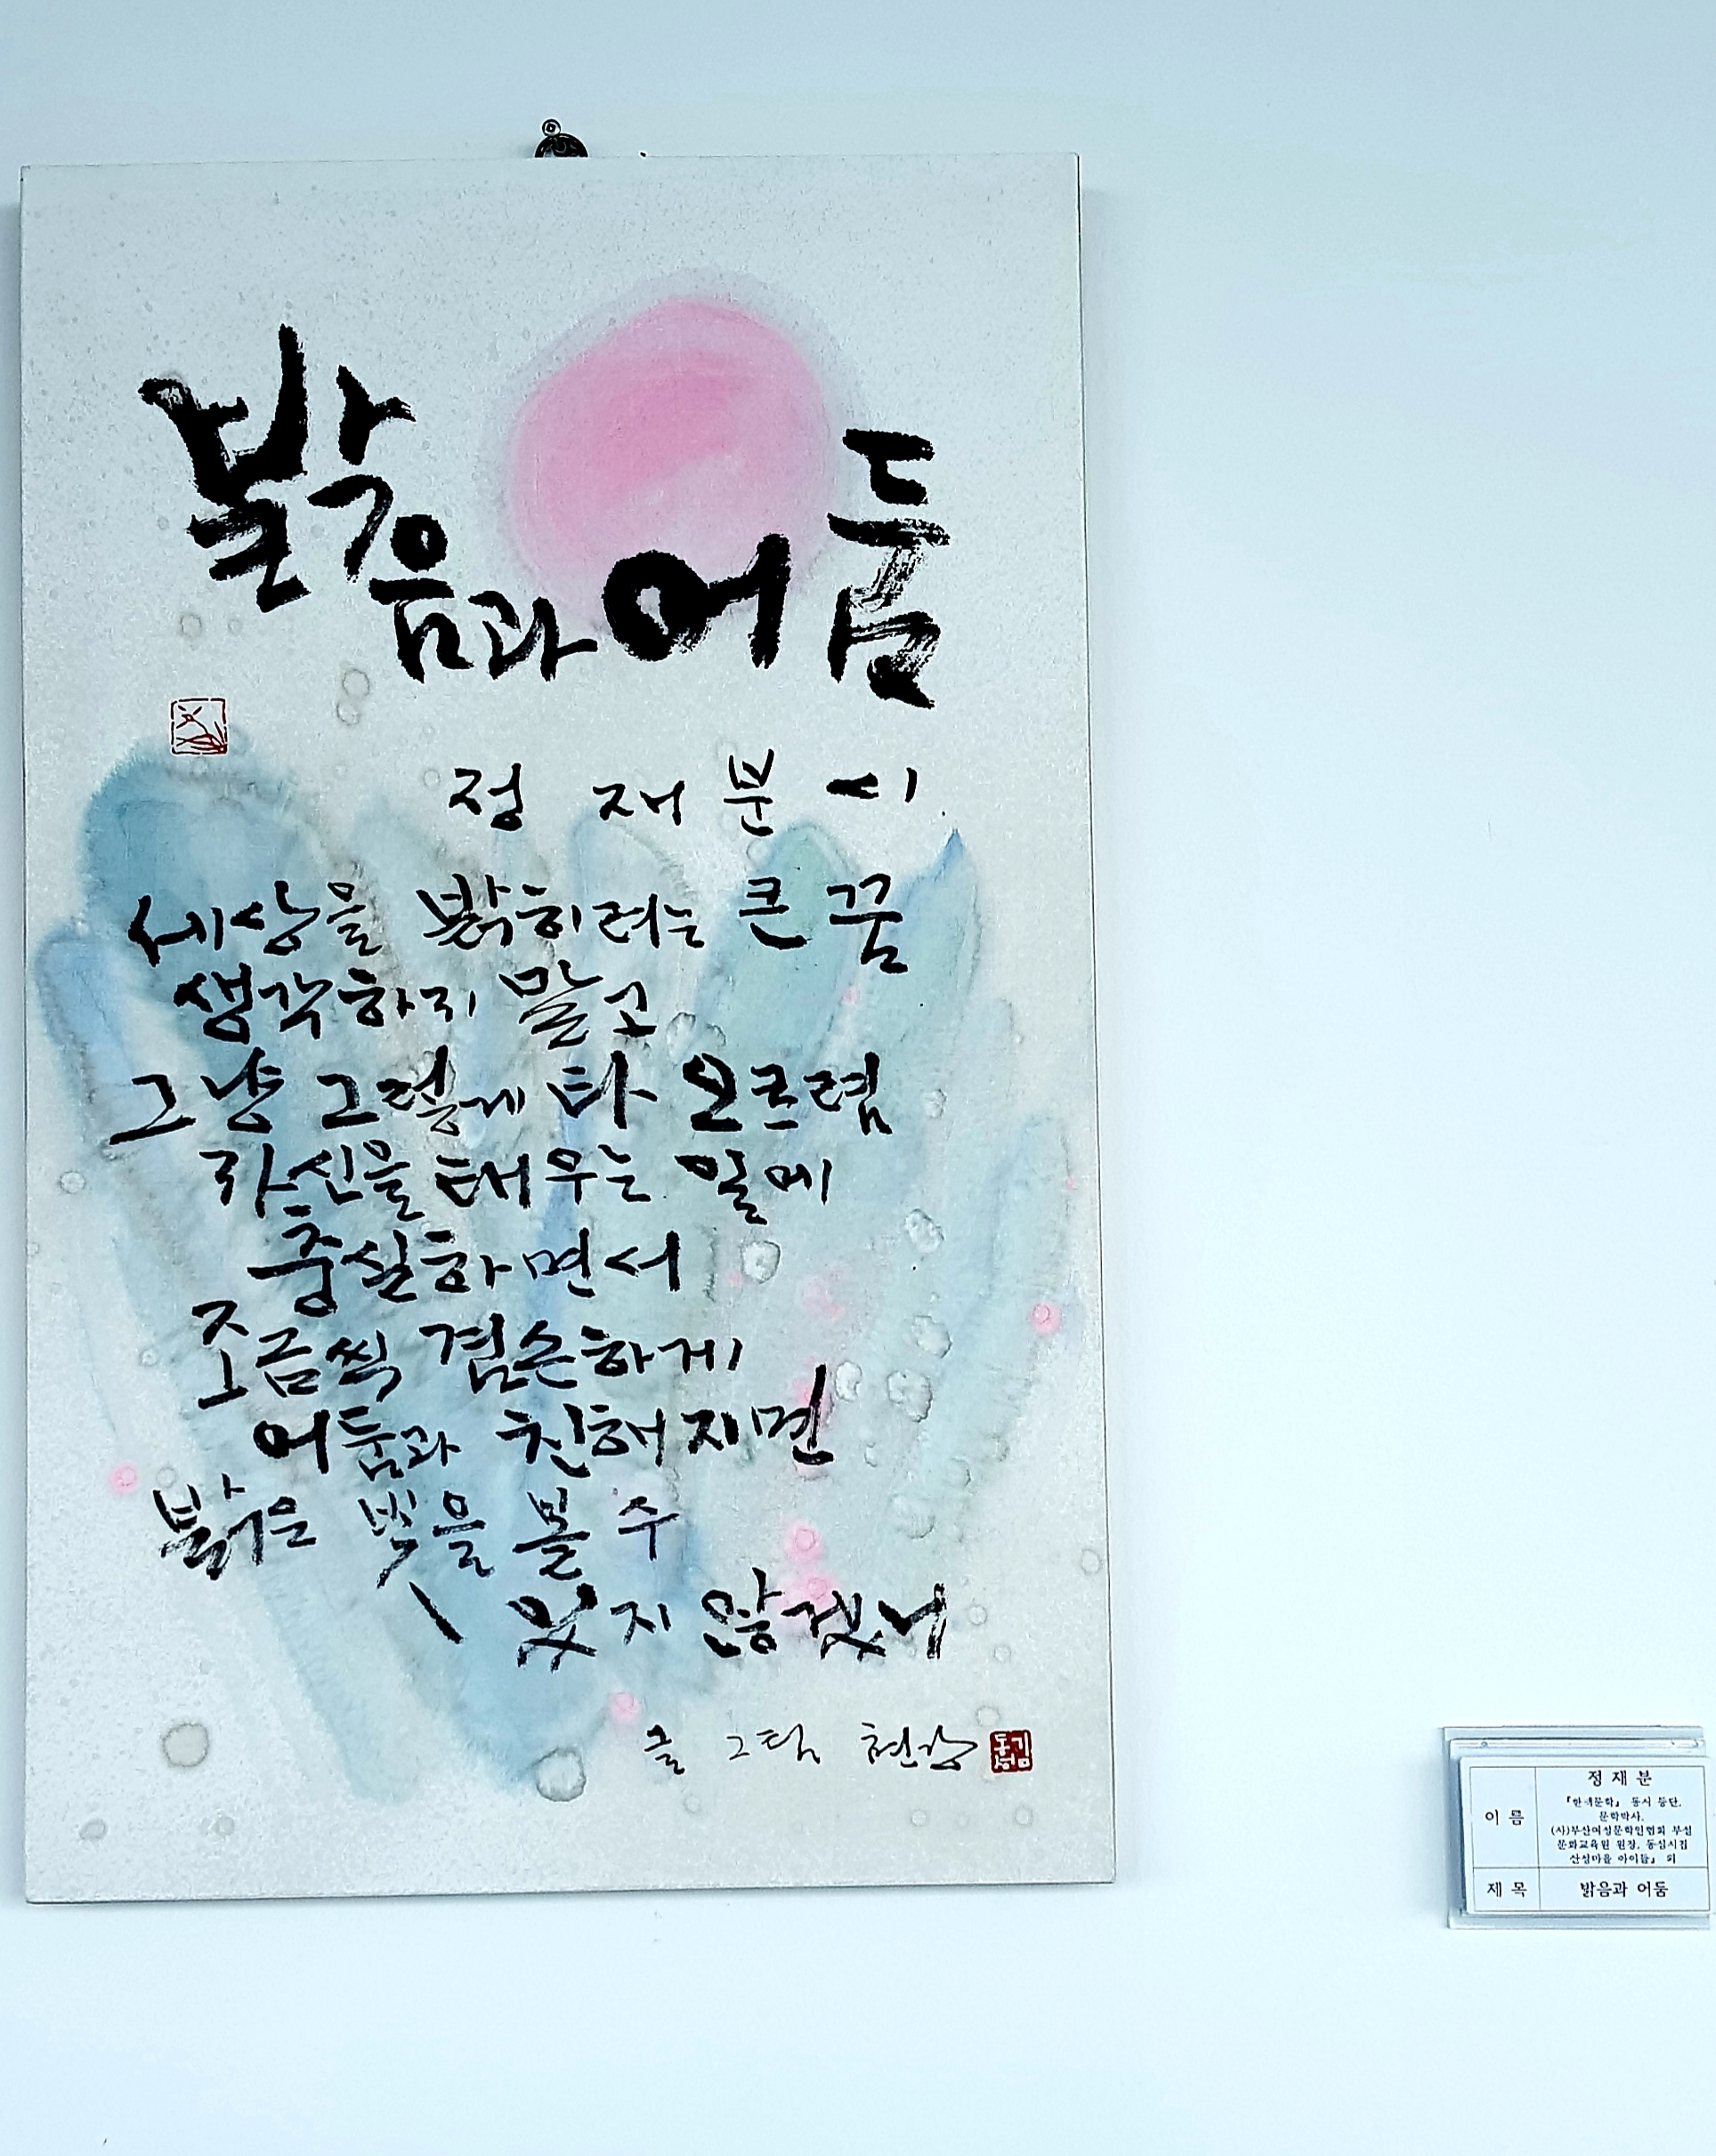 밝음과 어둠
정재분 시
세상을 밝히려는 큰 꿈
생각하지 말고
그냥 그렇게 타 오르렴
자신을 태우는 일에
충실하면서
조금씩 겸손하게
어둠과 친해지면
밝은 빛을 볼 수
있지 않겠니
글 그림 현강
이름
정재분
『한국문학』 동시 등단.
문학박사.
(사)부산여성문학인협회 부설
문화교육원 원장. 동심시집
산성마을 아이들』 외
제목
밝음과 어둠